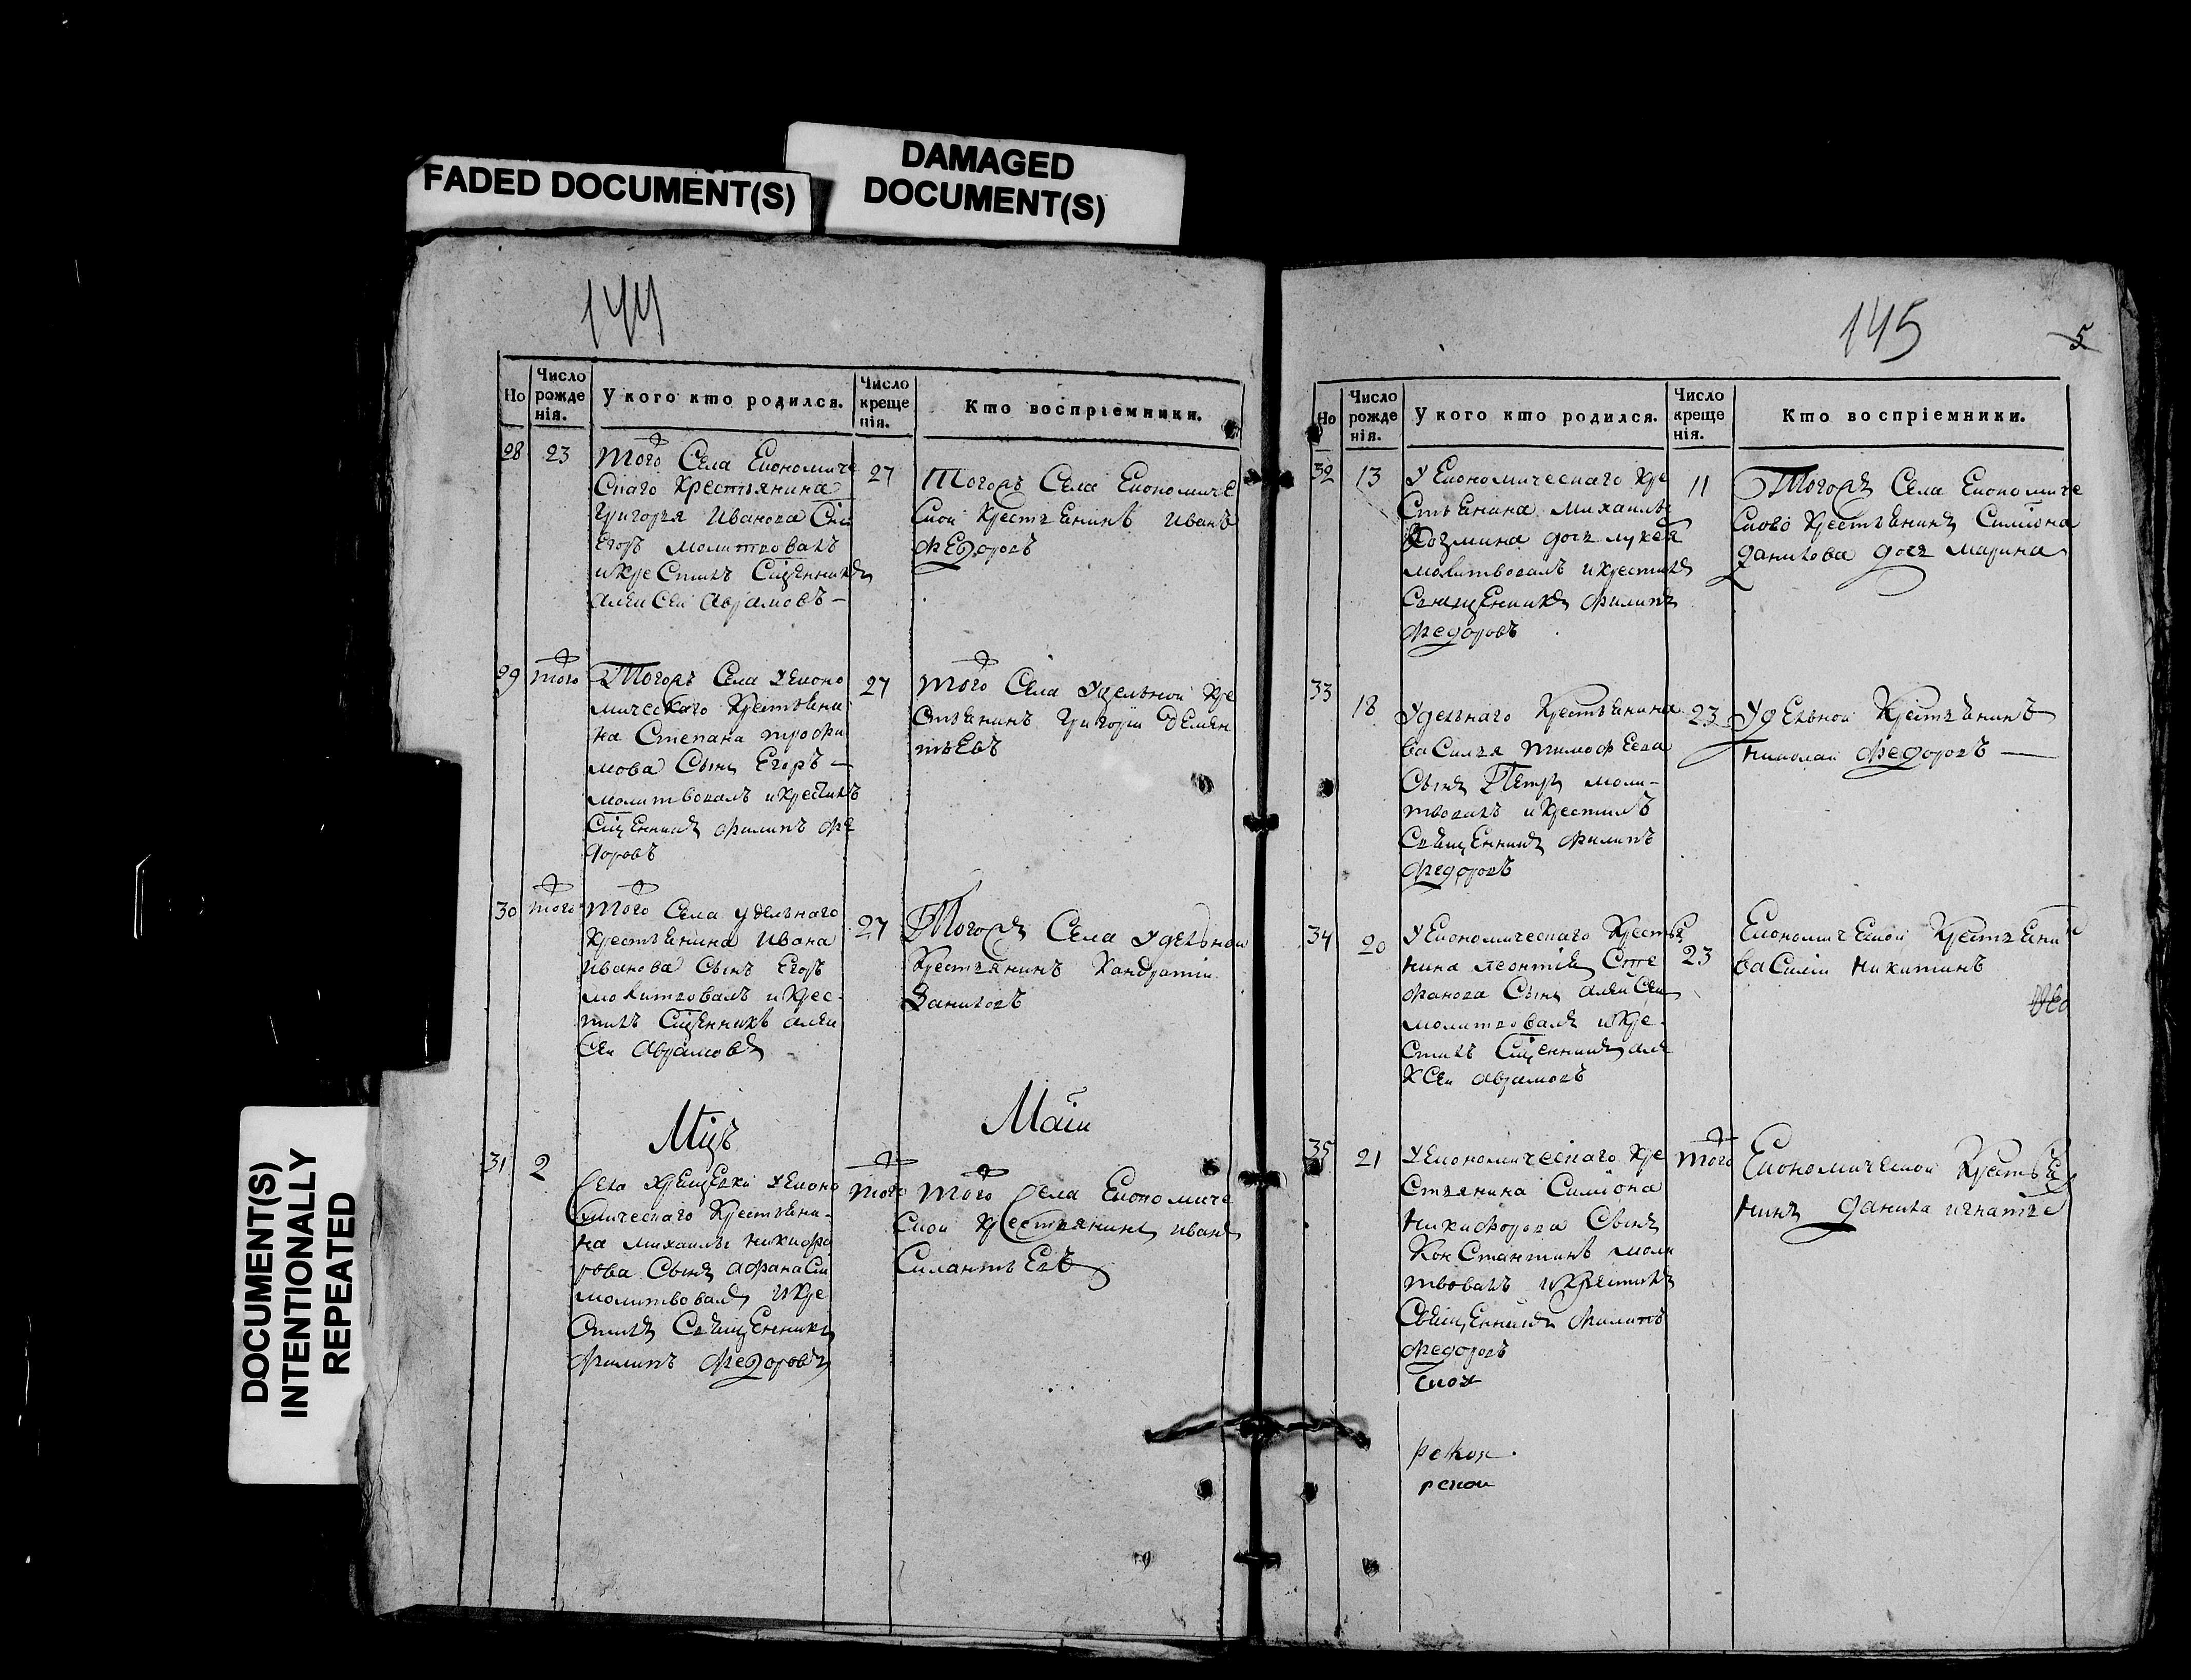 FADED DOCUMENT(S)
DAMAGED
DOCUMENT(S)
DOCUMENT(S)
INTENTIONALLY
REPEATED
144
Но
Число
рожде
нія.
У кого кто родился.
Число
креще
нія.
Кто воспріемники.
28 23
того Села Економиче
скаго Крестьянина
Григорья Иванова Снъ
Егоръ молитвовалъ
и крестилъ Сщенникъ
Алексеи Аврамовъ —
27
Тогожъ Села Економиче
скои Крестьенинъ Иванъ
Федоровъ
29 того
Тогожъ Села у Економ
мическаго Крестьяни
на Степана трофи
мова Сынъ Егоръ —
молитвовалъ и крестилъ
Сщенникъ Филипъ Фе
доровъ
27
того Села Удельнои Кре
стьенинъ Григори Демен
тьевъ
30 того
того Села удельнаго
Крестьенина Ивана
Иванова Сынъ Егоръ
молитвовалъ и крес
тилъ Сщенникъ алек
Сеи Аврамовъ
27
Тогожъ Села Удельнои
Крестьянинъ Кандратии
Даниловъ
Мцъ
Маiи
31 2
Села Хрещевки у Економ
мическаго Крестьяни
на Михаилы Никифо
рова Сынъ Афанаси
молитвовалъ и кре
стилъ Священникъ
Филипъ Федоровъ
того
того Села Економиче
скои Крестьянинъ Иванъ
Силантьевъ
145
5
Но
Число
рожде
нія.
У кого кто родился.
Число
креще
нія.
Кто воспріемники.
32 13
У Економическаго Кре
стьенина Михаилы
Козмина дочь лукея
молитвовалъ и крестилъ
Священникъ Филипъ
Федоровъ
11
Тогожъ Села Економиче
сково Крестьенина Симиона
данилова дочь марина
33 18
Удельнаго Крестьенина
василья тимофеева
Сынъ Петръ моли
твовалъ и крестилъ
Священникъ Филипъ
Федоровъ
23
Удельнои Крестьенинъ
николаи Федоровъ —
34 20
У Економическаго Крестья
нина леонтия Сте
фанова Сынъ алекСеи
молитвовалъ и кре
стилъ Сщенникъ але
кСеи аврамовъ
23
Економическои Крестьени
василии никитинъ
35 21
У Економическаго Кре
стьянина Симиона
никифорова Сынъ
Константинъ моли
твовалъ и крестилъ
Священникъ Филипъ
Федоровъ
того
Економическои Крестье
нинъ данила игнатье